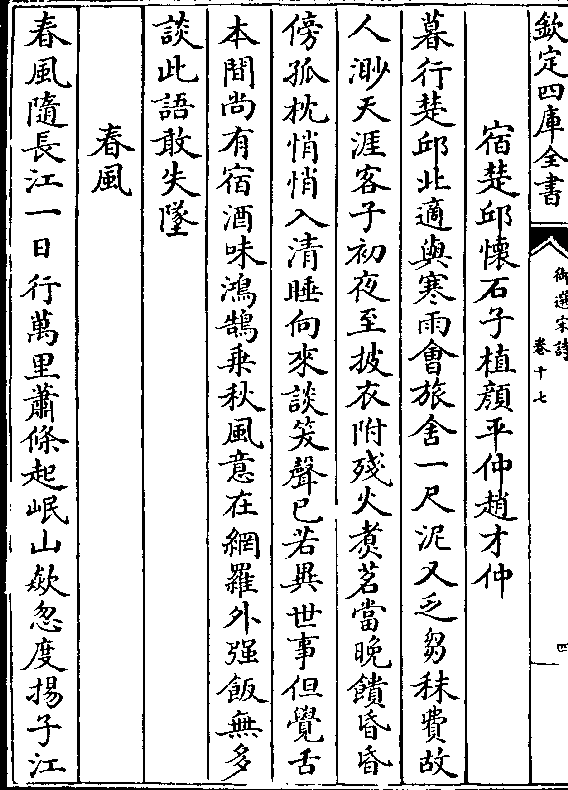 欽定四庫全書
御選宋詩
卷十七
四
宿楚邱懷石子植顔平仲趙才仲
暮行楚邱北適與寒雨會旅舍一尺泥又乏芻秣費故
人渺天涯客子初夜至披衣附殘火煑茗當晚饋昏昏
傍孤枕悄悄入清睡向來談笑聲已若異世事但覺舌
本間尚有宿酒味鴻鵠乘秋風意在網羅外强飯無多
談此語敢失墜
春風
春風隨長江一日行萬里蕭條起岷山歘忽度揚子江